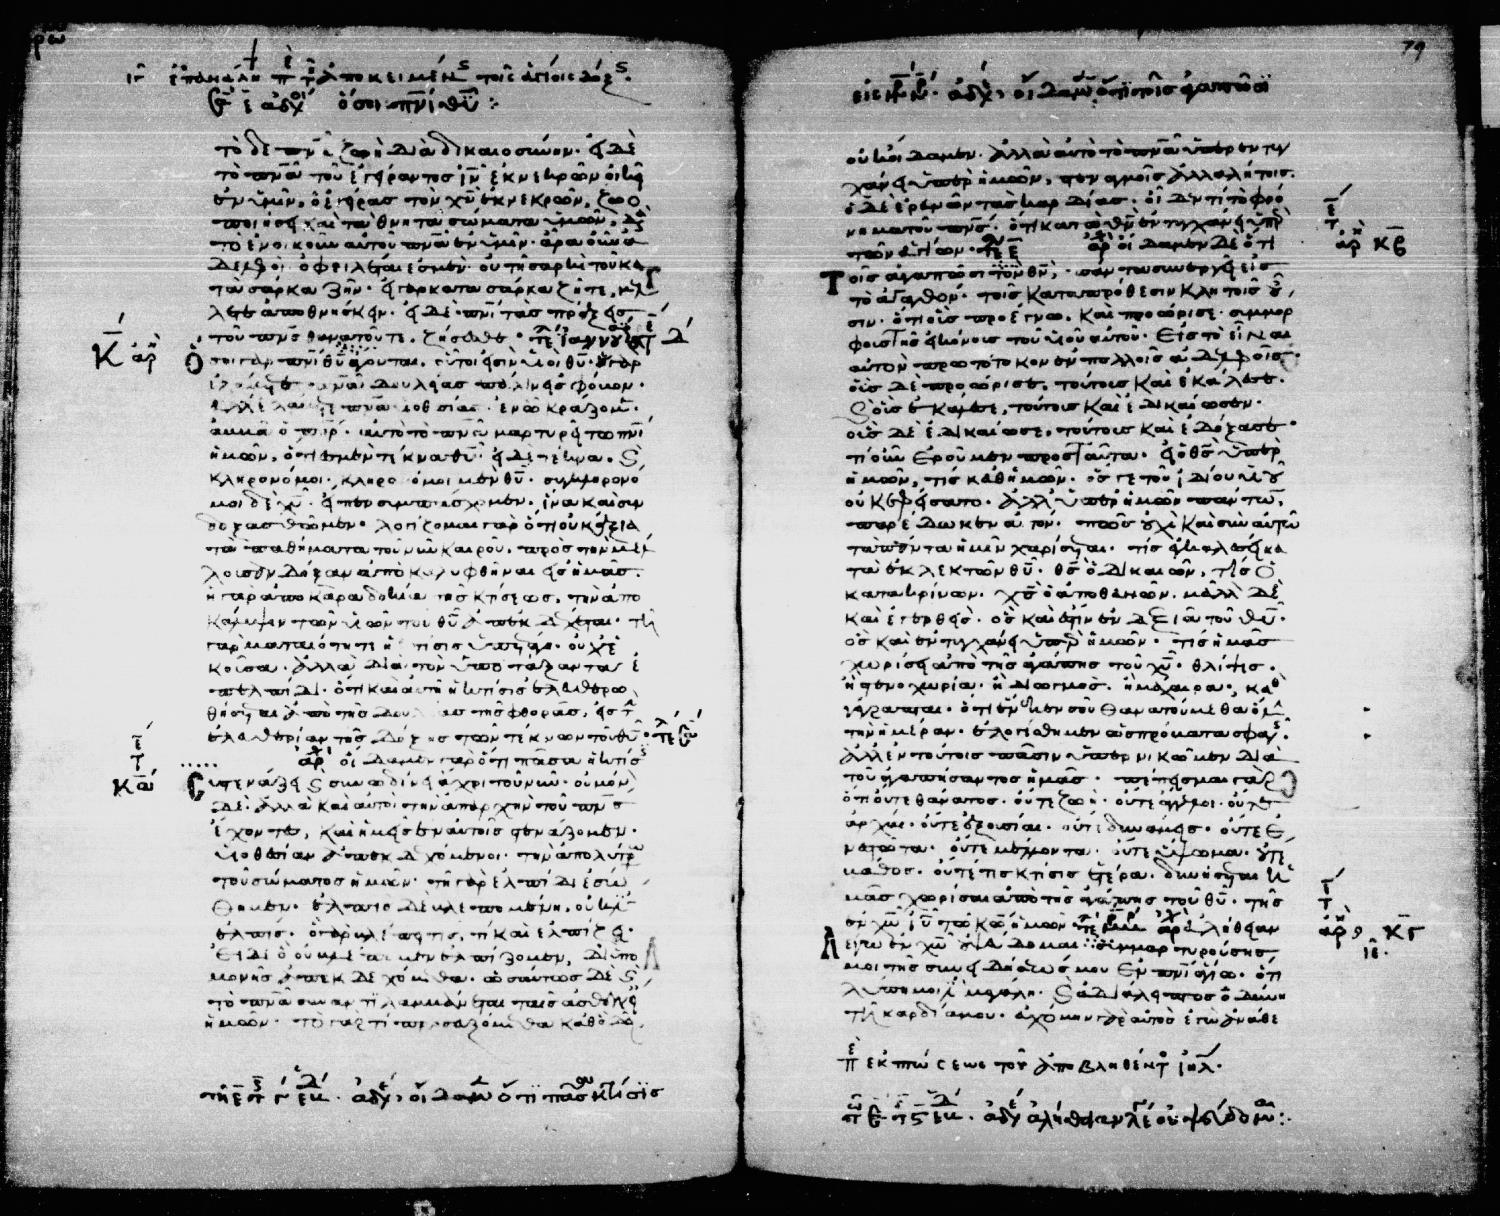 τὸ δὲ πνα ζωὴ διὰ δικαιοσύνην. εἰ δὲ
τὸ πνα τοῦ ἐγείραντος ιν ἐκ νεκρῶν οἰκεῖ
ἐν ὑμῖν, ὁ ἐγείρας τὸν χν ἐκ νεκρῶν, ζωο
ποιήσει καὶ τὰ θνητὰ σώματα ὑμῶν, διὰ
τὸ ἐνοικοῦν αὐτοῦ πνα ἐν ὑμῖν. ἄρα οὖν ἀ
δελφοὶ ὀφειλέται ἐσμὲν οὐ τῇ σαρκὶ τοῦ κα
τὰ σάρκα ζῆν. εἰ γὰρ κατὰ σάρκα ζῆτε, μέλ
λετε ἀποθνήσκειν. εἰ δὲ πνι τὰς πράξεις
τοῦ θανατοῦτε, ζήσεσθε
Κ ἀρ Ὅ
σοι γὰρ πνι θυ ἄγονται, οὗτοι εἰσὶν υἱοὶ θυ. οὐ γὰρ
ἐλάβετε πνα δουλείας πάλιν εἰς φόβον.
ἀλλ' ἐλάβετε πνα υἱοθεσίας ἐν ᾧ κράζομεν
ἀββᾶ ὁ πηρ. αὐτὸ τὸ πνα μαρτυρεῖ τῷ πνι
ἡμῶν, ὅτι ἐσμὲν τέκνα θυ. εἰ δὲ τέκνα,
κληρονόμοι. κληρονόμοι μὲν θυ. συγκληρονό
μοι δὲ χυ. εἴπερ συμπάσχομεν. ἵνα καὶ συν
δοξασθῶμεν. λογίζομαι γὰρ ὅτι οὐκ ἄξια
τὰ παθήματα τοῦ νῦν καιροῦ, πρὸς τὴν μέλ
λουσαν δόξαν ἀποκαλυφθῆναι εἰς ἡμᾶς.
ἡ γὰρ ἀποκαραδοκία τῆς κτίσεως, τὴν ἀπο
κάλυψιν τῶν υἱῶν τοῦ θυ ἀπεκδέχεται. τῇ
γὰρ ματαιότητι ἡ κτίσις ὑπετάγη. οὐχ ἑ
κοῦσα. ἀλλὰ διὰ τὸν ὑποτάξαντα ἐ
π' ἐλπίδι. ὅτι καὶ αὐτὴ ἡ κτίσις ἐλευθερω
θήσεται ἀπὸ τῆς δουλείας τῆς φθορᾶς, εἰς τὴν
ἐλευθερίαν τῆς δόξης τῶν τέκνων τοῦ θυ
οἴδαμεν γὰρ ὅτι πᾶσα ἡ κτίσις
συστενάζει συνωδίνει ἄχρι τοῦ νῦν. οὐ μόν
δὲ ἀλλὰ καὶ αὐτοὶ τὴν ἀπαρχὴν τοῦ πνς
ἔχοντες, καὶ ἡμεῖς ἐν αὐτοῖς στενάζομεν.
υἱοθεσίαν ἀπεκδεχόμενοι. τὴν ἀπολύτρω
τοῦ σώματος ἡμῶν. τῇ γὰρ ἐλπίδι ἐσώ
θημεν. ἐλπὶς δὲ βλεπομένη, οὐκ ἔστ
ἐλπίς. ὃ γὰρ βλέπει τις, τί καὶ ἐλπίζει.
Εἰ δὲ ὃ οὐ βλέπομεν ἐλπίζομεν, δι' ὑπο
μονῆς ἀπεκδεχόμεθα. ὡσαύτως δὲ
τὸ πνα συναντιλαμβάνεται ταῖς ἀσθενεί
ἡμῶν. τὸ γὰρ τί προσευξόμεθα καθὸ δεῖ,
79
οὐκ οἴδαμεν. ἀλλὰ αὐτὸ τὸ πνα ὑπερεντυγ
χάνει ὑπὲρ ἡμῶν, στεναγμοῖς ἀλαλήτοις.
ὁ δὲ ἐρευνῶν τὰς καρδίας. οἶδεν τί τὸ φρό
νημα τοῦ πνς. ὅτι κατὰ θν ἐντυγχάνει ὑπὲρ
τῶν ἁγίων. οἴδαμεν δὲ ὅτι
Τοῖς ἀγαπῶσι τὸν θν, πάντα συνεργεῖ εἰς
τὸ ἀγαθόν. τοῖς κατὰ πρόθεσιν κλητοῖς οὖ
σιν. ὅτι οὓς προέγνω, καὶ προώρισε. συμμόρ
φους τῆς εἰκόνος τοῦ υἱοῦ αὐτοῦ. Εἰς τὸ εἶναι
αὐτὸν πρωτότοκον ἐν πολλοῖς ἀδελφοῖς.
οὓς δὲ προώρισε, τούτους καὶ ἐκάλεσε.
οὓς ἐκάλεσε, τούτους καὶ ἐδικαίωσεν.
οὓς δὲ ἐδικαίωσε, τούτους καὶ ἐδόξασε.
τί οὖν ἐροῦμεν πρὸς ταῦτα. εἰ ὁ θς ὑπὲρ
ἡμῶν, τίς καθ' ἡμῶν. ὅς γε τοῦ ἰδίου υἱοῦ
οὐκ ἐφείσατο. ἀλλ' ὑπὲρ ἡμῶν πάντων
παρέδωκεν αὐτόν. πῶς οὐχὶ καὶ σὺν αὐτῷ
τὰ πάντα ἡμῖν χαρίσεται. τίς ἐγκαλέσει κα
τὰ ἐκλεκτῶν θυ. θς ὁ δικαιῶν, τίς ὁ
κατακρίνων. χς ὁ ἀποθανών. μᾶλλον δὲ
καὶ ἐγερθείς. ὃς καὶ ἐστὶν ἐν δεξιᾷ τοῦ θυ.
ὃς καὶ ἐντυγχάνει ὑπὲρ ἡμῶν. τίς ἡμᾶς
χωρίσει ἀπὸ τῆς ἀγάπης τοῦ χυ. θλίψις.
ἢ στενοχωρία. ἢ διωγμός. ἢ μάχαιρα, κα
γέγραπται. ὅτι ἕνεκεν σοῦ θανατούμεθα ὅλ
τὴν ἡμέραν. ἐλογίσθημεν ὡς πρόβατα σφαγ
ἀλλ' ἐν τούτοις πᾶσιν ὑπερνικῶμεν διὰ
τοῦ ἀγαπήσαντος ἡμᾶς. πέπεισμαι γὰρ
ὅτι οὔτε θάνατος. οὔτε ζωή. οὔτε ἄγγελοι. οὔτε
ἀρχαί. οὔτε ἐξουσίαι. οὔτε δυνάμεις. οὔτε ἐ
νεστῶτα. οὔτε μέλλοντα. οὔτε ὕψωμα. οὔτε
βάθος. οὔτε τις κτίσις ἑτέρα. δυνήσεται ἡ
μᾶς χωρίσαι ἀπὸ τῆς ἀγάπης τοῦ θυ. τῆς
ἐν χω ιυ τῷ κω ἡμῶν ἀλήθειαν
Λέγω ἐν χω οὐ ψεύδομαι συμμαρτυρούσης
μοι τῆς συνειδήσεώς μου ἐν πνι ἁγίῳ. ὅτι
λύπη μοι μεγάλη. ἀδιάλειπτος ὀδύνη
τῇ καρδίᾳ μου. εὐχόμην γὰρ αὐτὸς ἐγὼ ἀνάθε
ἐκπτώσεως τοῦ ἀποβληθέντ ιηλ.